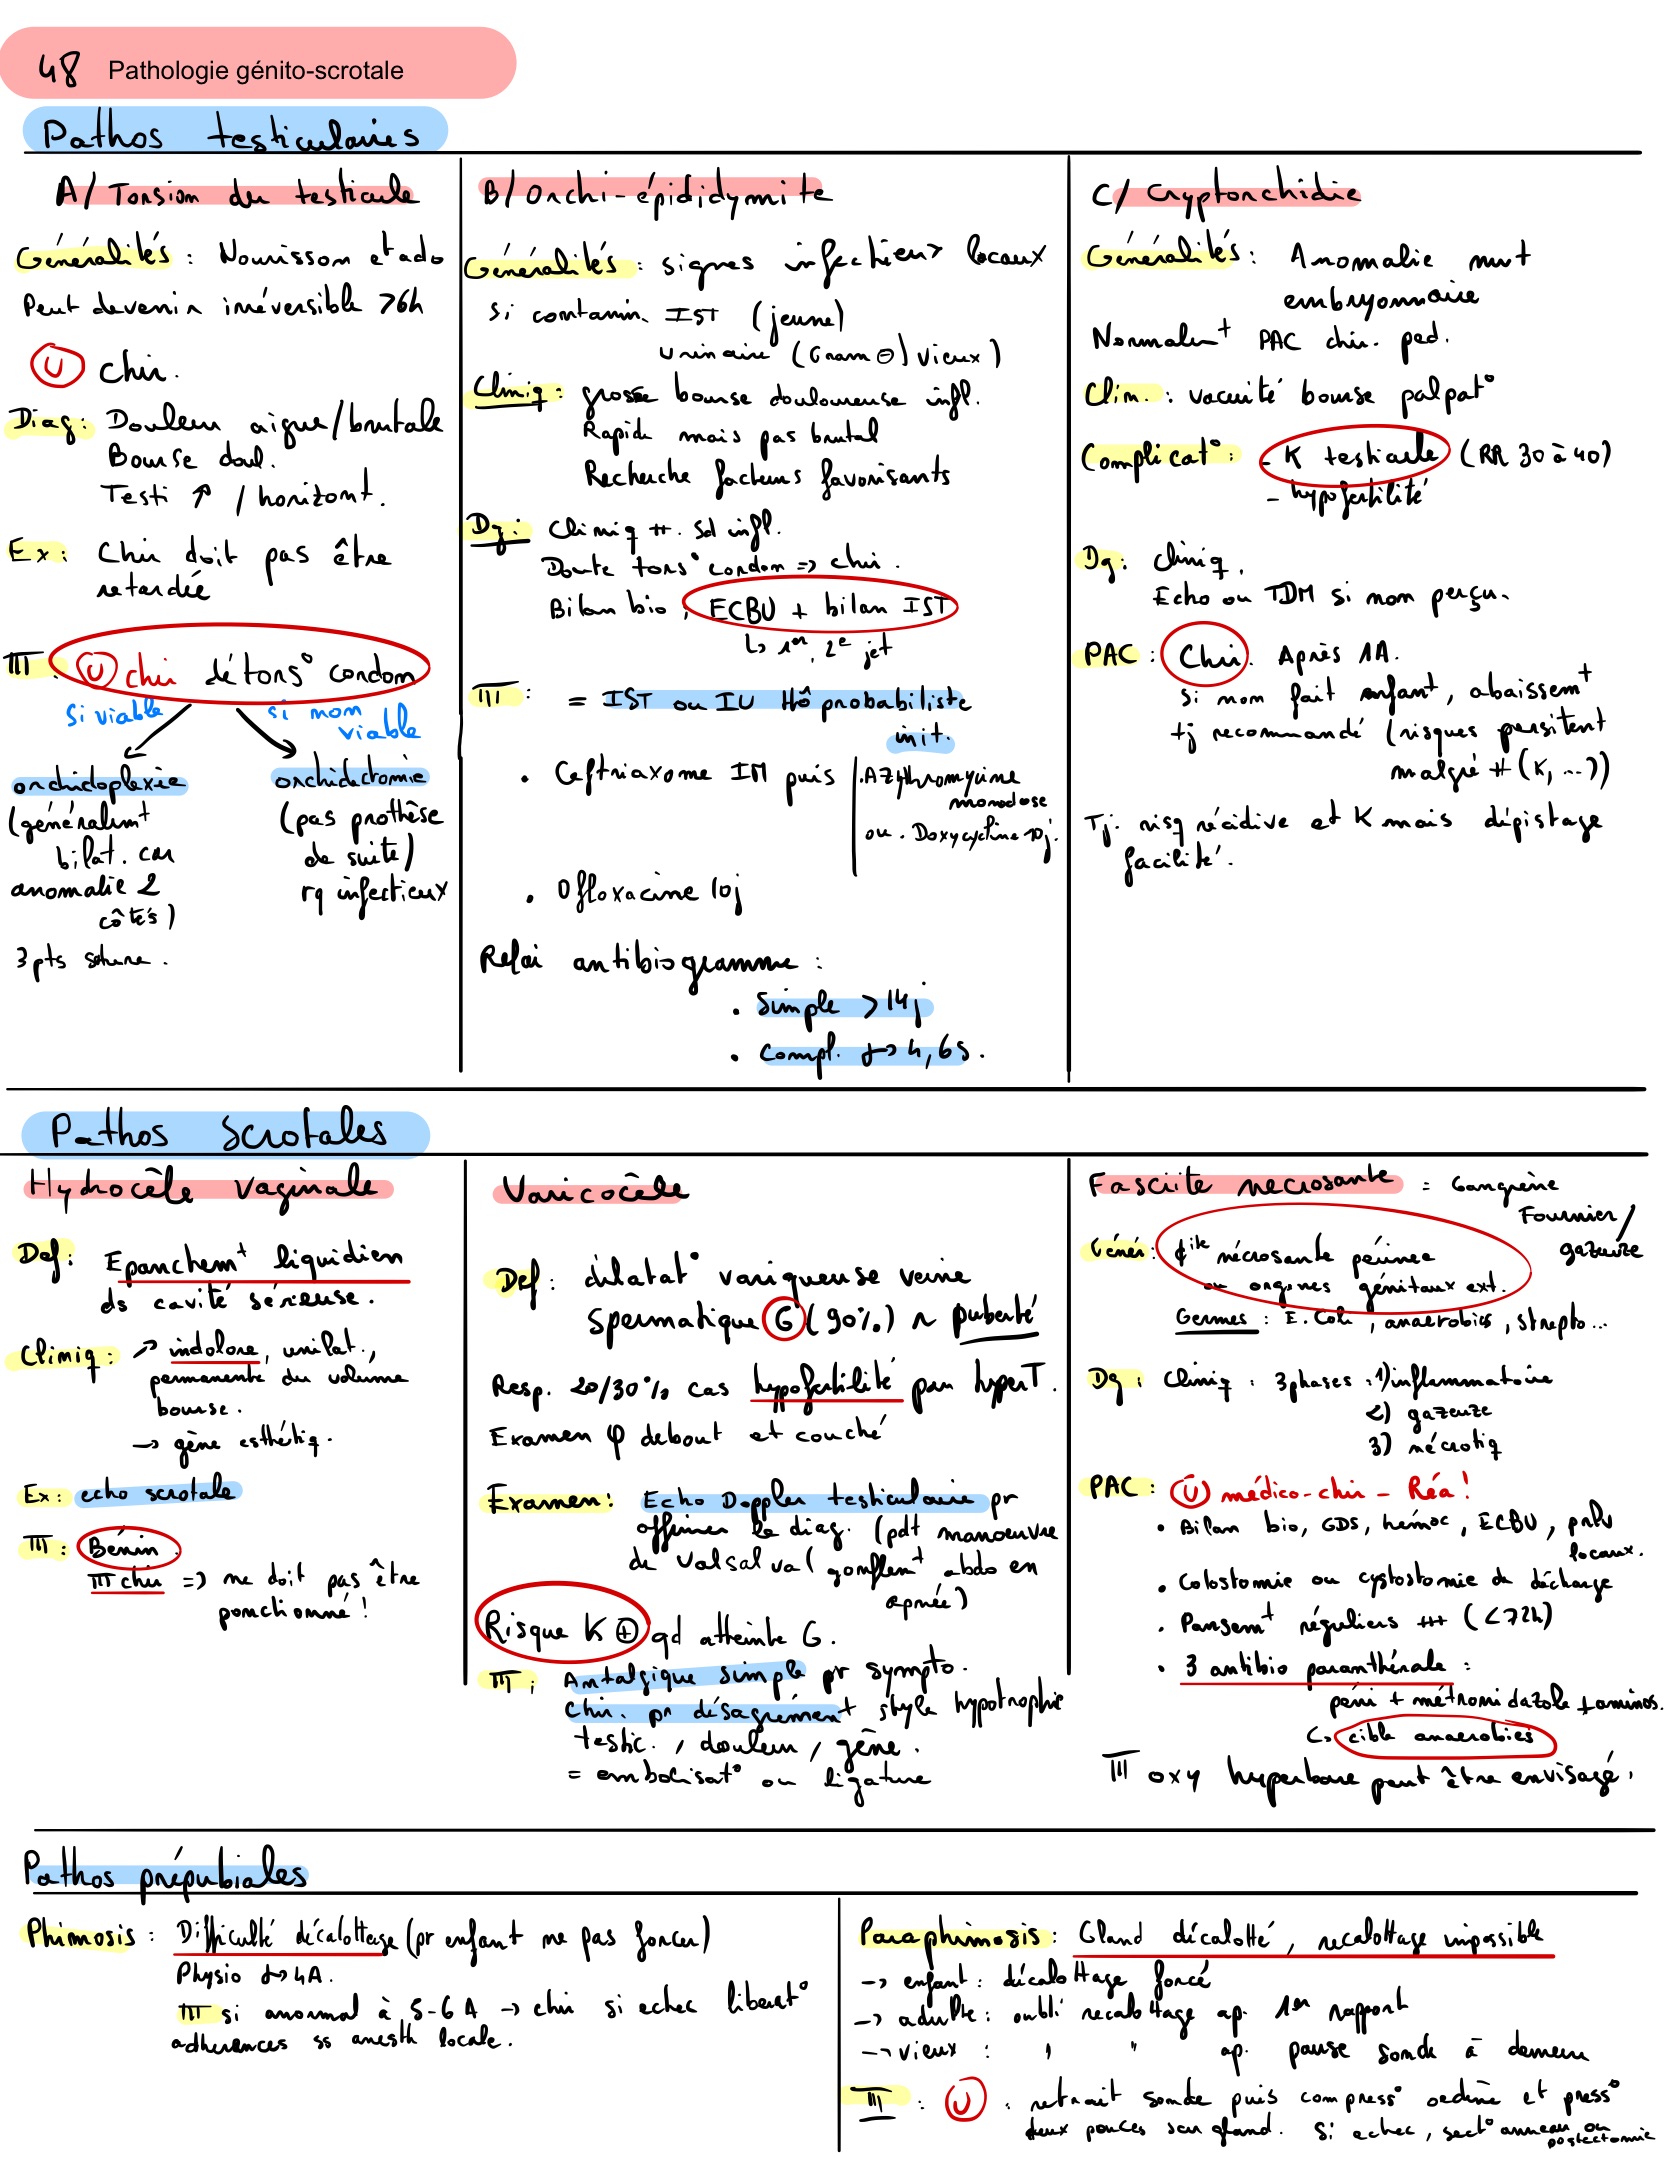 48 Pathologie génito-scrotale
Pathos testiculaires
A/ Torsion du testicule
Généralités : Nourisson et ado
Peut devenir irréversible >6h
(U) chir.
Diag : Douleur aigue/brutale
Bourse doul.
Testi ↑ / horizont.
Ex : Chir doit pas être
retardée
TTT : (U) chir détors° cordon
si viable
si non
viable
orchidopexie
(généralemt
bilat. car
anomalie 2
côtés)
3 pts suture.
orchidectomie
(pas prothèse
de suite)
rq infectieux
B/ Orchi-épididymite
Généralités : signes infectieux locaux
Si contamin. IST (jeune)
urinaire (Gram ⊖) vieux)
Cliniq : grosse bourse douloureuse infl.
Rapide mais pas brutal
Recherche facteurs favorisants
Dg : Cliniq ++. Sd infl.
Doute tors° cordon => chir.
Bilan bio, ECBU + bilan IST
↳ 1er, 2e jet
TTT : = IST ou IU Hô probabiliste
init.
• Ceftriaxone IM puis | . Azythromycine
monodose
ou . Doxycycline 10j.
• Ofloxacine 10j
Relai antibiogramme :
• Simple > 14j
• Compl. → 4, 6s.
C/ Cryptorchidie
Généralités : Anomalie mvt
embryonnaire
Normalemt PAC chir. ped.
Clin. : vacuité bourse palpat°
Complicat° : - K testicule (RR 30 à 40)
- hypofertilité
Dg : cliniq.
Echo ou TDM si non perçu.
PAC : Chir. Après 1A.
si non fait enfant, abaissemt
tj recommandé (risques persitent
malgré # (K, ...))
Tj. risq récidive et K mais dépistage
facilité.
Pathos scrotales
Hydrocèle vaginale
Def : Epanchemt liquidien
ds cavité séreuse.
Cliniq : ↗ indolore, unilat.,
permanente du volume
bourse.
→ gène esthétiq.
Ex : echo scrotale
TTT : Bénin.
TTT chir => ne doit pas être
ponctionné !
Varicocèle
Def : dilatat° variqueuse veine
spermatique G (90%) ~ puberté
Resp. 20/30% cas hypofertilité par hyperT.
Examen φ debout et couché
Examen : Echo Doppler testiculaire pr
affirmer le diag. (pdt manoeuvre
de valsalva (gonflemt abdo en
apnée)
Risque K ⊕ qd atteinte G.
TTT : Antalgique simple pr sympto.
Chir. pr désagrément style hypotrophie
testic., douleur, gêne.
= embolisat° ou ligature
Fasciite necrosante = Gangrène
Fournier/
gazeuze
Génér : ¢ite nécrosante périnée
ou organes génitaux ext.
Germes : E. Coli, anaerobies, strepto...
Dg : Cliniq : 3 phases : 1) inflammatoire
2) gazeuze
3) nécrotiq
PAC : (U) médico-chir - Réa !
• Bilan bio, GDS, hémoc, ECBU, prlv
locaux.
• Colostomie ou cystostomie de décharge
• Pansemt réguliers +++ (<72h)
• 3 antibio paranthérale :
péni + métronidazole + aminos.
↳ cible anaerobies
TTT oxy hyperbare peut être envisagé.
Pathos prépubiales
Phimosis : Difficulté décalottage (pr enfant ne pas forcer)
Physio → 4A.
TTT si anormal à 5-6 A → chir si echec liberat°
adherences ss anesth locale.
Paraphimosis : Gland décalotté, recalottage impossible
→ enfant : décalottage forcé
→ adulte : oubli recalottage ap. 1er rapport
→ vieux : " " ap. pause sonde à demeure
TTT : (U) : retrait sonde puis compress° oedème et press°
deux pouces sur gland. Si echec, sect° anneau ou
postectomie